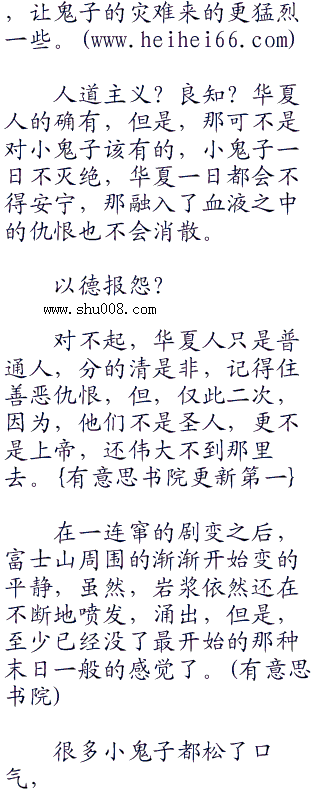 ，让鬼子的灾难来的更猛烈
一些。(www.heihei66.com)
人道主义？良知？华夏
人的确有，但是，那可不是
对小鬼子该有的，小鬼子一
日不灭绝，华夏一日都会不
得安宁，那融入了血液之中
的仇恨也不会消散。
以德报怨？
www.shu008.com
对不起，华夏人只是普
通人，分的清是非，记得住
善恶仇恨，但，仅此二次，
因为，他们不是圣人，更不
是上帝，还伟大不到那里
去。{有意思书院更新第一}
在一连窜的剧变之后，
富士山周围的渐渐开始变的
平静，虽然，岩浆依然还在
不断地喷发，涌出，但是，
至少已经没了最开始的那种
末日一般的感觉了。(有意思
书院)
很多小鬼子都松了口
气，